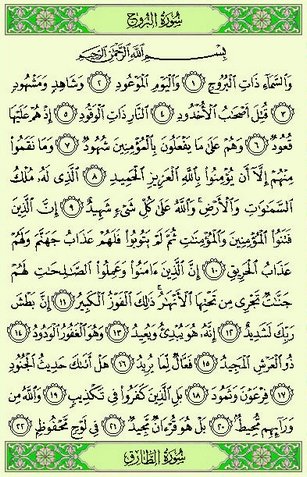 سُورَةُ البُرُوجِ
بِسْمِ ٱللَّهِ ٱلرَّحْمَٰنِ ٱلرَّحِيمِ
وَٱلسَّمَآءِ ذَاتِ ٱلْبُرُوجِ ١ وَٱلْيَوْمِ ٱلْمَوْعُودِ ٢ وَشَاهِدٍ وَمَشْهُودٍ
٣ قُتِلَ أَصْحَٰبُ ٱلْأُخْدُودِ ٤ ٱلنَّارِ ذَاتِ ٱلْوَقُودِ ٥ إِذْ هُمْ عَلَيْهَا
قُعُودٌ ٦ وَهُمْ عَلَىٰ مَا يَفْعَلُونَ بِٱلْمُؤْمِنِينَ شُهُودٌ ٧ وَمَا نَقَمُوا۟
مِنْهُمْ إِلَّآ أَن يُؤْمِنُوا۟ بِٱللَّهِ ٱلْعَزِيزِ ٱلْحَمِيدِ ٨ ٱلَّذِى لَهُۥ مُلْكُ
ٱلسَّمَٰوَٰتِ وَٱلْأَرْضِ ۚ وَٱللَّهُ عَلَىٰ كُلِّ شَىْءٍ شَهِيدٌ ٩ إِنَّ ٱلَّذِينَ
فَتَنُوا۟ ٱلْمُؤْمِنِينَ وَٱلْمُؤْمِنَٰتِ ثُمَّ لَمْ يَتُوبُوا۟ فَلَهُمْ عَذَابُ جَهَنَّمَ وَلَهُمْ
عَذَابُ ٱلْحَرِيقِ ١٠ إِنَّ ٱلَّذِينَ ءَامَنُوا۟ وَعَمِلُوا۟ ٱلصَّٰلِحَٰتِ لَهُمْ
جَنَّٰتٌ تَجْرِى مِن تَحْتِهَا ٱلْأَنْهَٰرُ ۚ ذَٰلِكَ ٱلْفَوْزُ ٱلْكَبِيرُ ١١ إِنَّ بَطْشَ
رَبِّكَ لَشَدِيدٌ ١٢ إِنَّهُۥ هُوَ يُبْدِئُ وَيُعِيدُ ١٣ وَهُوَ ٱلْغَفُورُ ٱلْوَدُودُ ١٤
ذُو ٱلْعَرْشِ ٱلْمَجِيدُ ١٥ فَعَّالٌ لِّمَا يُرِيدُ ١٦ هَلْ أَتَىٰكَ حَدِيثُ ٱلْجُنُودِ
١٧ فِرْعَوْنَ وَثَمُودَ ١٨ بَلِ ٱلَّذِينَ كَفَرُوا۟ فِى تَكْذِيبٍ ١٩ وَٱللَّهُ مِن
وَرَآئِهِم مُّحِيطٌۢ ٢٠ بَلْ هُوَ قُرْءَانٌ مَّجِيدٌ ٢١ فِى لَوْحٍ مَّحْفُوظٍۭ ٢٢
سُورَةُ الطَّارِقِ